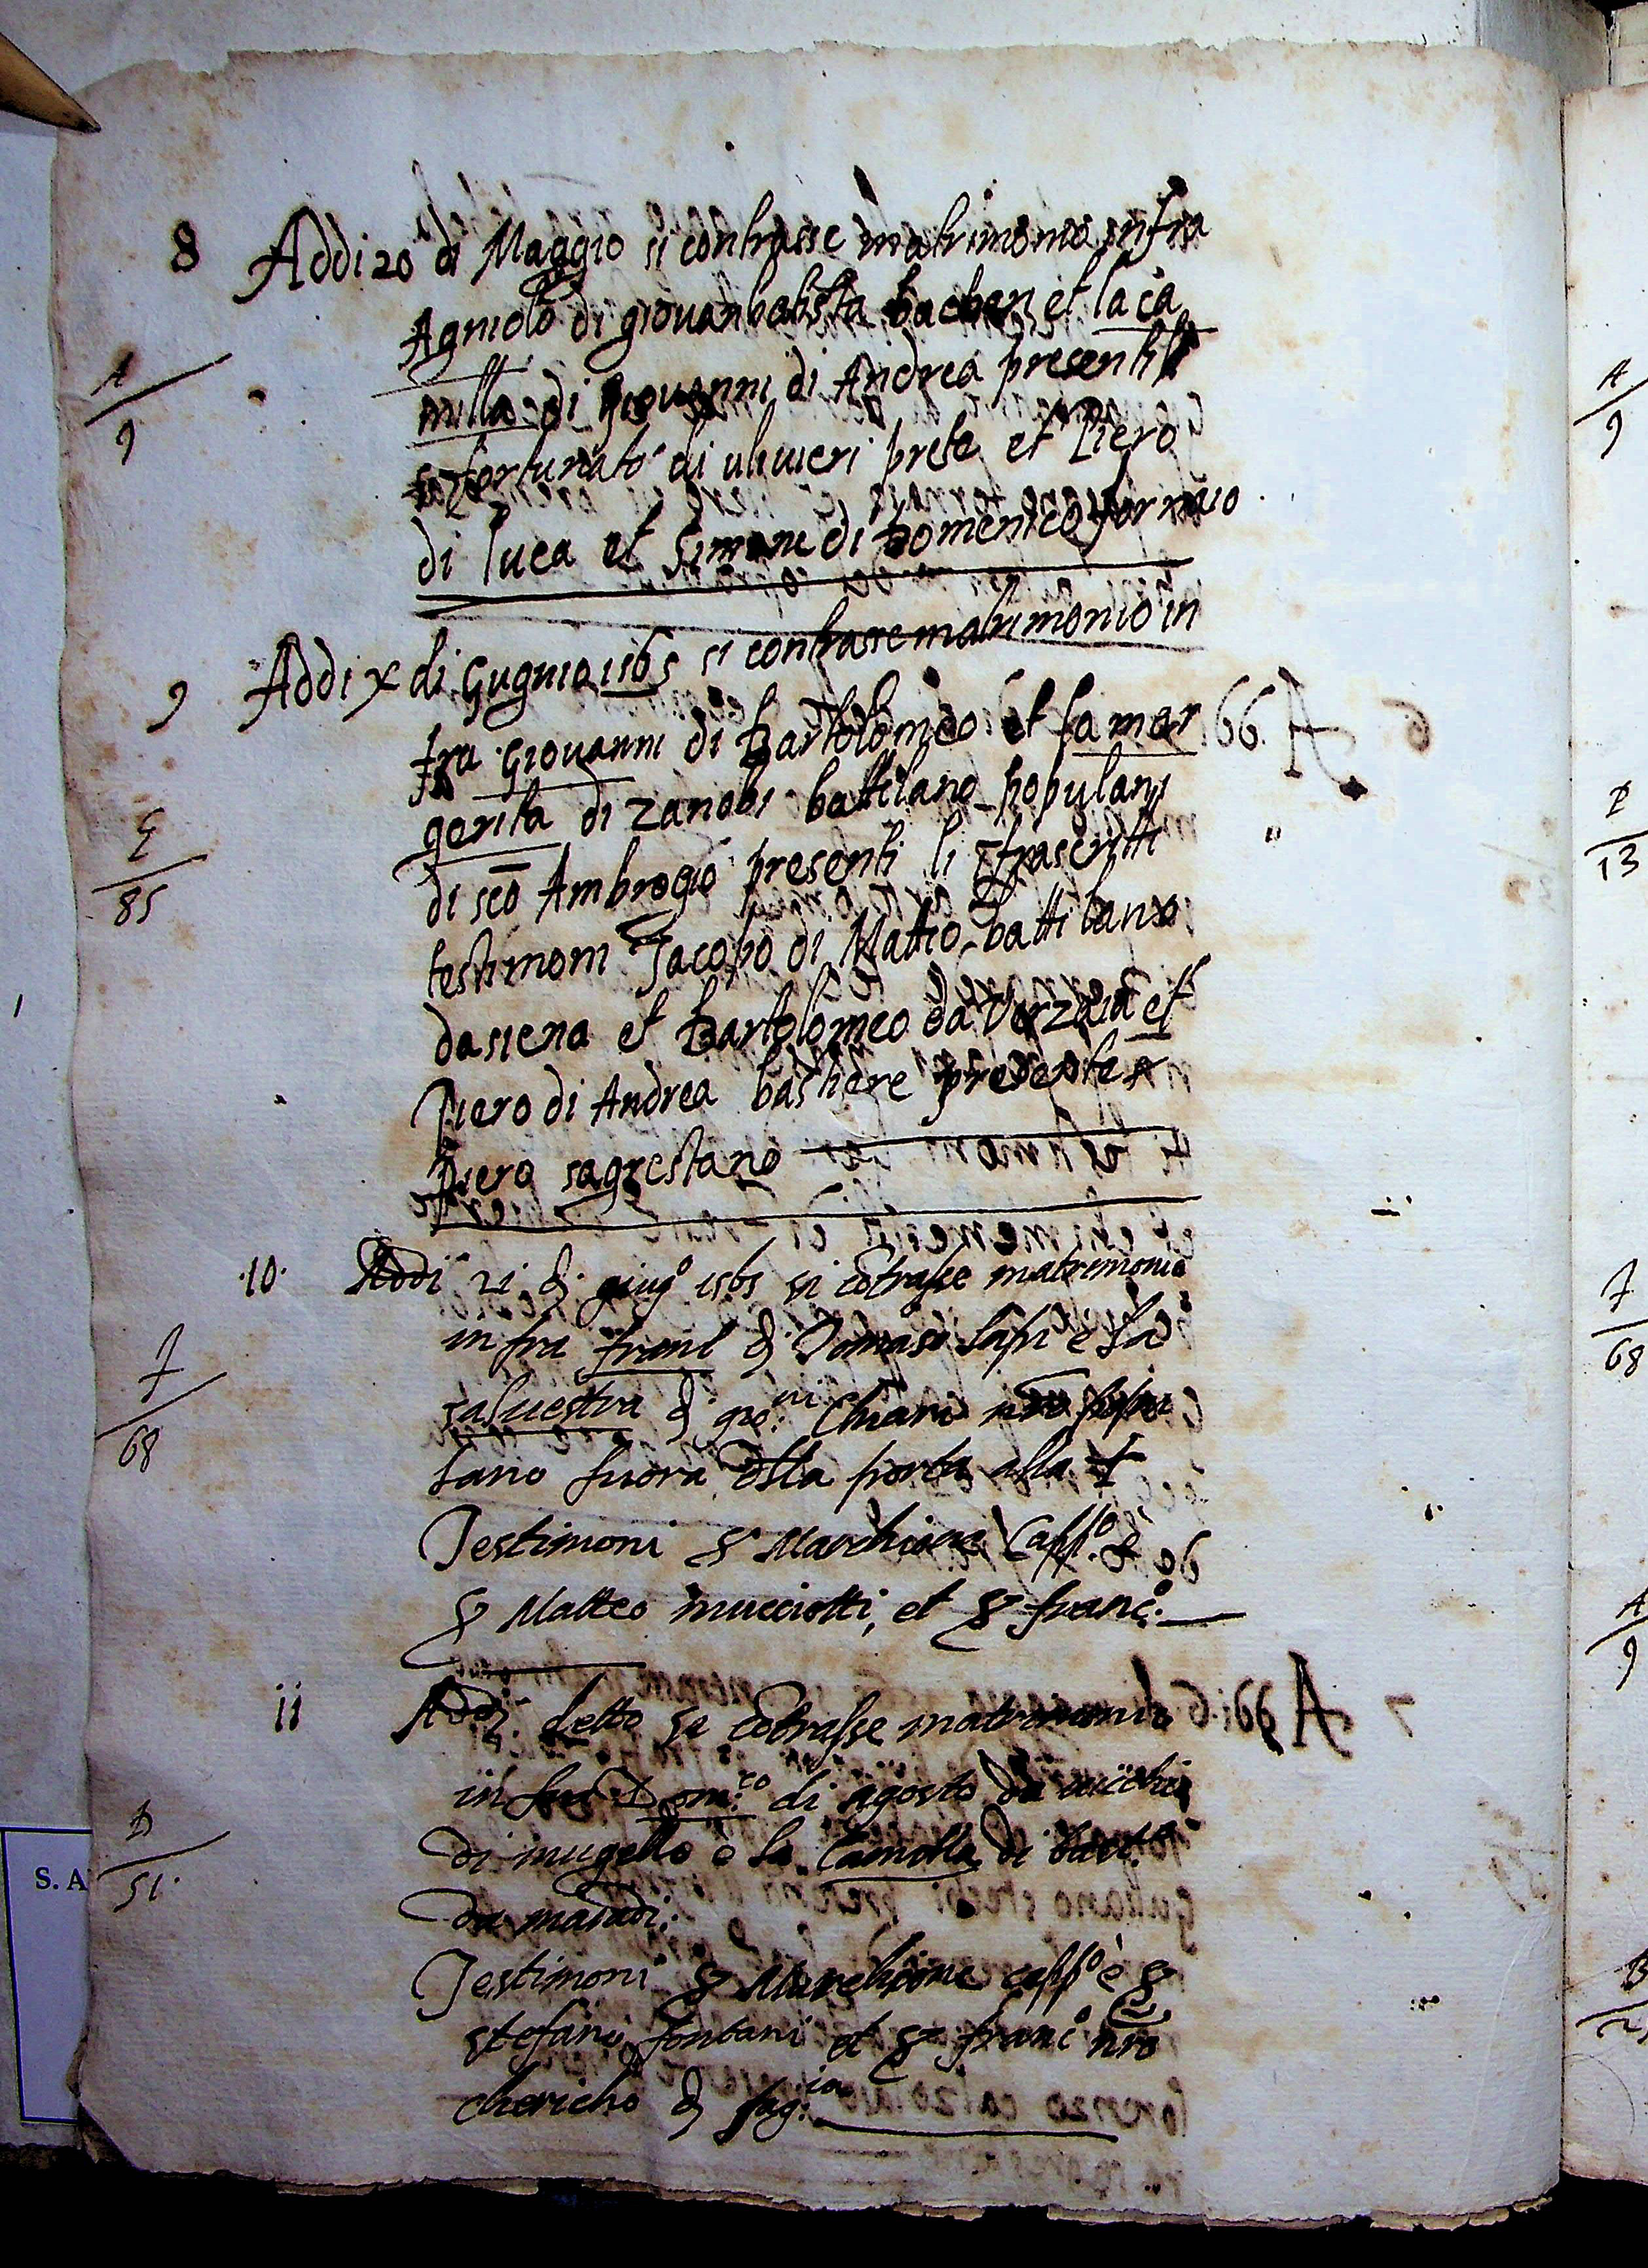 8 Addi 20 di Maggio si contrasse matrimonio infra
Agniolo di giovanbatista et la ca
A
9
milla di giovanni di Andrea presenti
s. fortunato di ulivieri prete et Piero
di luca et Simone di Domenico fornaio
9 Addi x di Gugnio 1565 si contrasse matrimonio in
fra Giovanni di Bartolomeo et la mar
gerita di zanobi battilano populani
E
85
di sco Ambrogio presenti li ifrascritti
testimoni Jacopo di Matteo battilano
da siena et Bartolomeo da Verzaia et
Piero di Andrea bastiere presente
Piero sagrestano
.10. Addi 21 di giug.o 1565 si cotrasse matrimonio
infra di Tomaso lapi e la
f
68
salvestra di gio:ni Chiari nro popu
lano fuora dlla porta alla †
Testimoni Sr Marchione Capp.o e
Sr Matteo mucciotti, et Sr franc.o
ii Addi detto se cotrasse matrimonio
infra Dom:co di agosto da vicchio
D
51.
di mugello e la Camilla di
da
Testimoni Sr Marchione capp.o è Sr
stefano fontani et Sr franc.o nro
chericho di sag:ia
A
9
P
13
f
68
A
9
B
S. A